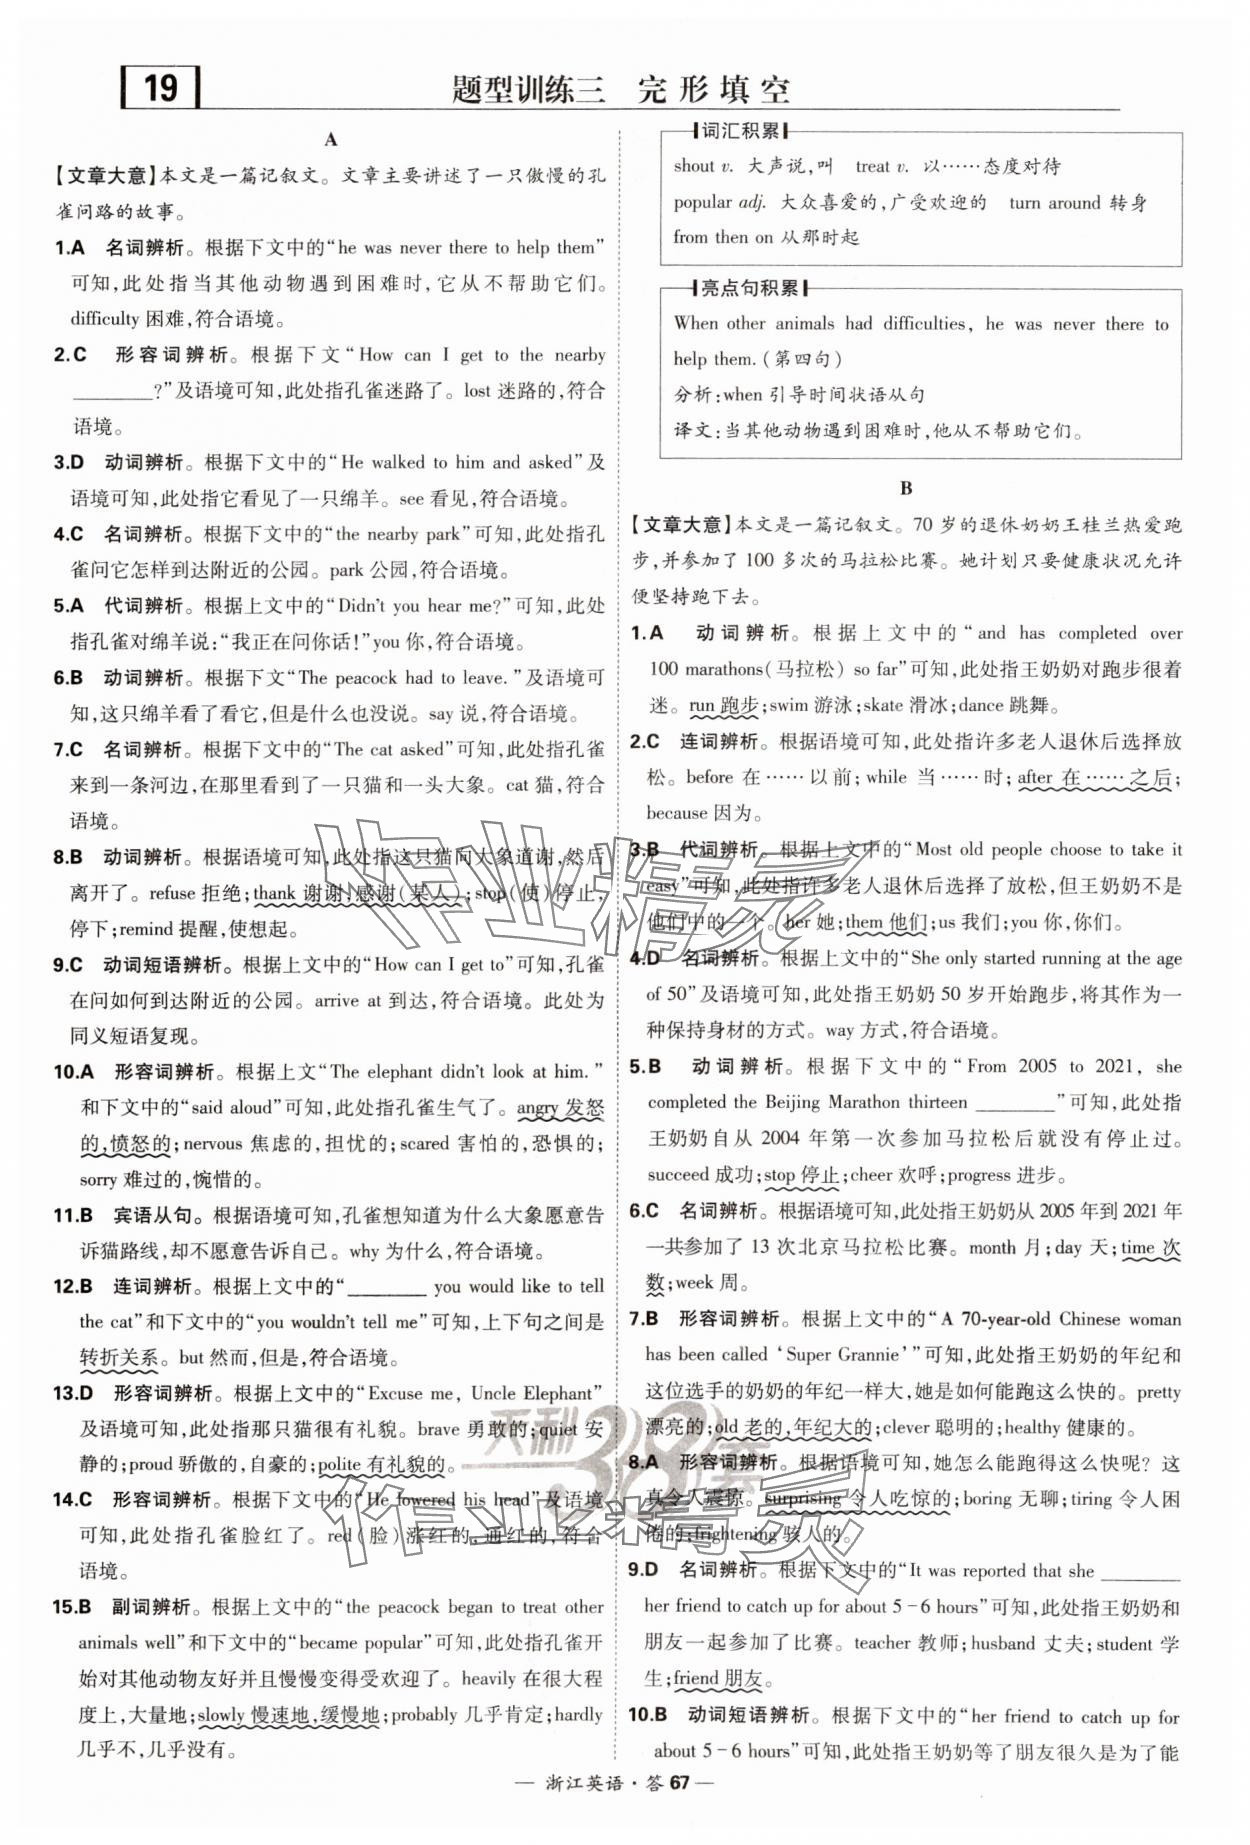 19
题型训练三　完形填空
A
【文章大意】本文是一篇记叙文。文章主要讲述了一只傲慢的孔
雀问路的故事。
1.A　名词辨析。根据下文中的“he was never there to help them”
可知，此处指当其他动物遇到困难时，它从不帮助它们。
difficulty 困难，符合语境。
2.C　形容词辨析。根据下文“How can I get to the nearby
________?”及语境可知，此处指孔雀迷路了。lost 迷路的，符合
语境。
3.D　动词辨析。根据下文中的“He walked to him and asked”及
语境可知，此处指它看见了一只绵羊。see 看见，符合语境。
4.C　名词辨析。根据下文中的“the nearby park”可知，此处指孔
雀问它怎样到达附近的公园。park 公园，符合语境。
5.A　代词辨析。根据上文中的“Didn't you hear me?”可知，此处
指孔雀对绵羊说：“我正在问你话！”you 你，符合语境。
6.B　动词辨析。根据下文“The peacock had to leave.”及语境可
知，这只绵羊看了看它，但是什么也没说。say 说，符合语境。
7.C　名词辨析。根据下文中的“The cat asked”可知，此处指孔雀
来到一条河边，在那里看到了一只猫和一头大象。cat 猫，符合
语境。
8.B　动词辨析。根据语境可知，此处指这只猫向大象道谢，然后
离开了。refuse 拒绝；thank 谢谢，感谢(某人)；stop(使)停止，
停下；remind 提醒，使想起。
9.C　动词短语辨析。根据上文中的“How can I get to”可知，孔雀
在问如何到达附近的公园。arrive at 到达，符合语境。此处为
同义短语复现。
10.A　形容词辨析。根据上文“The elephant didn't look at him.”
和下文中的“said aloud”可知，此处指孔雀生气了。angry 发怒
的，愤怒的；nervous 焦虑的，担忧的；scared 害怕的，恐惧的；
sorry 难过的，惋惜的。
11.B　宾语从句。根据语境可知，孔雀想知道为什么大象愿意告
诉猫路线，却不愿意告诉自己。why 为什么，符合语境。
12.B　连词辨析。根据上文中的“________ you would like to tell
the cat”和下文中的“you wouldn't tell me”可知，上下句之间是
转折关系。but 然而，但是，符合语境。
13.D　形容词辨析。根据上文中的“Excuse me, Uncle Elephant”
及语境可知，此处指那只猫很有礼貌。brave 勇敢的；quiet 安
静的；proud 骄傲的，自豪的；polite 有礼貌的。
14.C　形容词辨析。根据下文中的“He lowered his head”及语境
可知，此处指孔雀脸红了。red(脸)涨红的，通红的，符合
语境。
15.B　副词辨析。根据上文中的“the peacock began to treat other
animals well”和下文中的“became popular”可知，此处指孔雀开
始对其他动物友好并且慢慢变得受欢迎了。heavily 在很大程
度上，大量地；slowly 慢速地，缓慢地；probably 几乎肯定；hardly
几乎不，几乎没有。
词汇积累
shout v. 大声说，叫　treat v. 以……态度对待
popular adj. 大众喜爱的，广受欢迎的　turn around 转身
from then on 从那时起
亮点句积累
When other animals had difficulties, he was never there to
help them.(第四句)
分析：when 引导时间状语从句
译文：当其他动物遇到困难时，他从不帮助它们。
B
【文章大意】本文是一篇记叙文。70 岁的退休奶奶王桂兰热爱跑
步，并参加了 100 多次的马拉松比赛。她计划只要健康状况允许
便坚持跑下去。
1.A　动词辨析。根据上文中的“and has completed over
100 marathons(马拉松) so far”可知，此处指王奶奶对跑步很着
迷。run 跑步；swim 游泳；skate 滑冰；dance 跳舞。
2.C　连词辨析。根据语境可知，此处指许多老人退休后选择放
松。before 在……以前；while 当……时；after 在……之后；
because 因为。
3.B　代词辨析。根据上文中的“Most old people choose to take it
easy”可知，此处指许多老人退休后选择了放松，但王奶奶不是
他们中的一个。her 她；them 他们；us 我们；you 你，你们。
4.D　名词辨析。根据上文中的“She only started running at the age
of 50”及语境可知，此处指王奶奶 50 岁开始跑步，将其作为一
种保持身材的方式。way 方式，符合语境。
5.B　动词辨析。根据下文中的“From 2005 to 2021, she
completed the Beijing Marathon thirteen ________”可知，此处指
王奶奶自从 2004 年第一次参加马拉松后就没有停止过。
succeed 成功；stop 停止；cheer 欢呼；progress 进步。
6.C　名词辨析。根据语境可知，此处指王奶奶从 2005 年到 2021 年
一共参加了 13 次北京马拉松比赛。month 月；day 天；time 次
数；week 周。
7.B　形容词辨析。根据上文中的“A 70-year-old Chinese woman
has been called ‘Super Grannie’”可知，此处指王奶奶的年纪和
这位选手的奶奶的年纪一样大，她是如何能跑这么快的。pretty
漂亮的；old 老的，年纪大的；clever 聪明的；healthy 健康的。
8.A　形容词辨析。根据语境可知，她怎么能跑得这么快呢？这
真令人震惊。surprising 令人吃惊的；boring 无聊；tiring 令人困
倦的；frightening 骇人的。
9.D　名词辨析。根据下文中的“It was reported that she ________
her friend to catch up for about 5-6 hours”可知，此处指王奶奶和
朋友一起参加了比赛。teacher 教师；husband 丈夫；student 学
生；friend 朋友。
10.B　动词短语辨析。根据下文中的“her friend to catch up for
about 5-6 hours”可知，此处指王奶奶等了朋友很久是为了能
— 浙江英语·答 67 —
作业精灵
天利38套
作业精灵